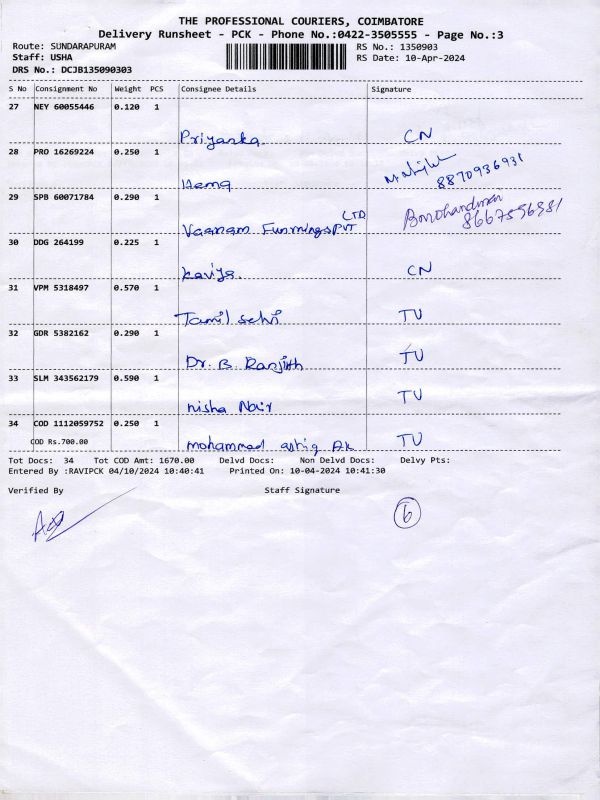 THE PROFESSIONAL COURIERS, COIMBATORE
Delivery Runsheet - PCK - Phone No.:0422-3505555 - Page No.:3
Route: SUNDARAPURAM
RS No.: 1350903
Staff: USHA
RS Date: 10-Apr-2024
DRS No.: DCJB135090303
S No Consignment No Weight PCS Consignee Details Signature
27 NEY 60055446 0.120 1
Priyanka CN
28 PRO 16269224 0.250 1
Hema 8870936931
29 SPB 60071784 0.290 1
Vaanam PVT LTD 8667596981
30 DDG 264199 0.225 1
Kaviya CN
31 VPM 5318497 0.570 1
Tamil selvi TU
32 GDR 5382162 0.290 1
Dr. B. Ranjith TU
33 SLM 343562179 0.590 1
nisha Nair TU
34 COD 1112059752 0.250 1
COD Rs.700.00
mohammed TU
Tot Docs: 34 Tot COD Amt: 1670.00 Delvd Docs: Non Delvd Docs: Delvy Pts:
Entered By :RAVIPCK 04/10/2024 10:40:41 Printed On: 10-04-2024 10:41:30
Verified By Staff Signature
6